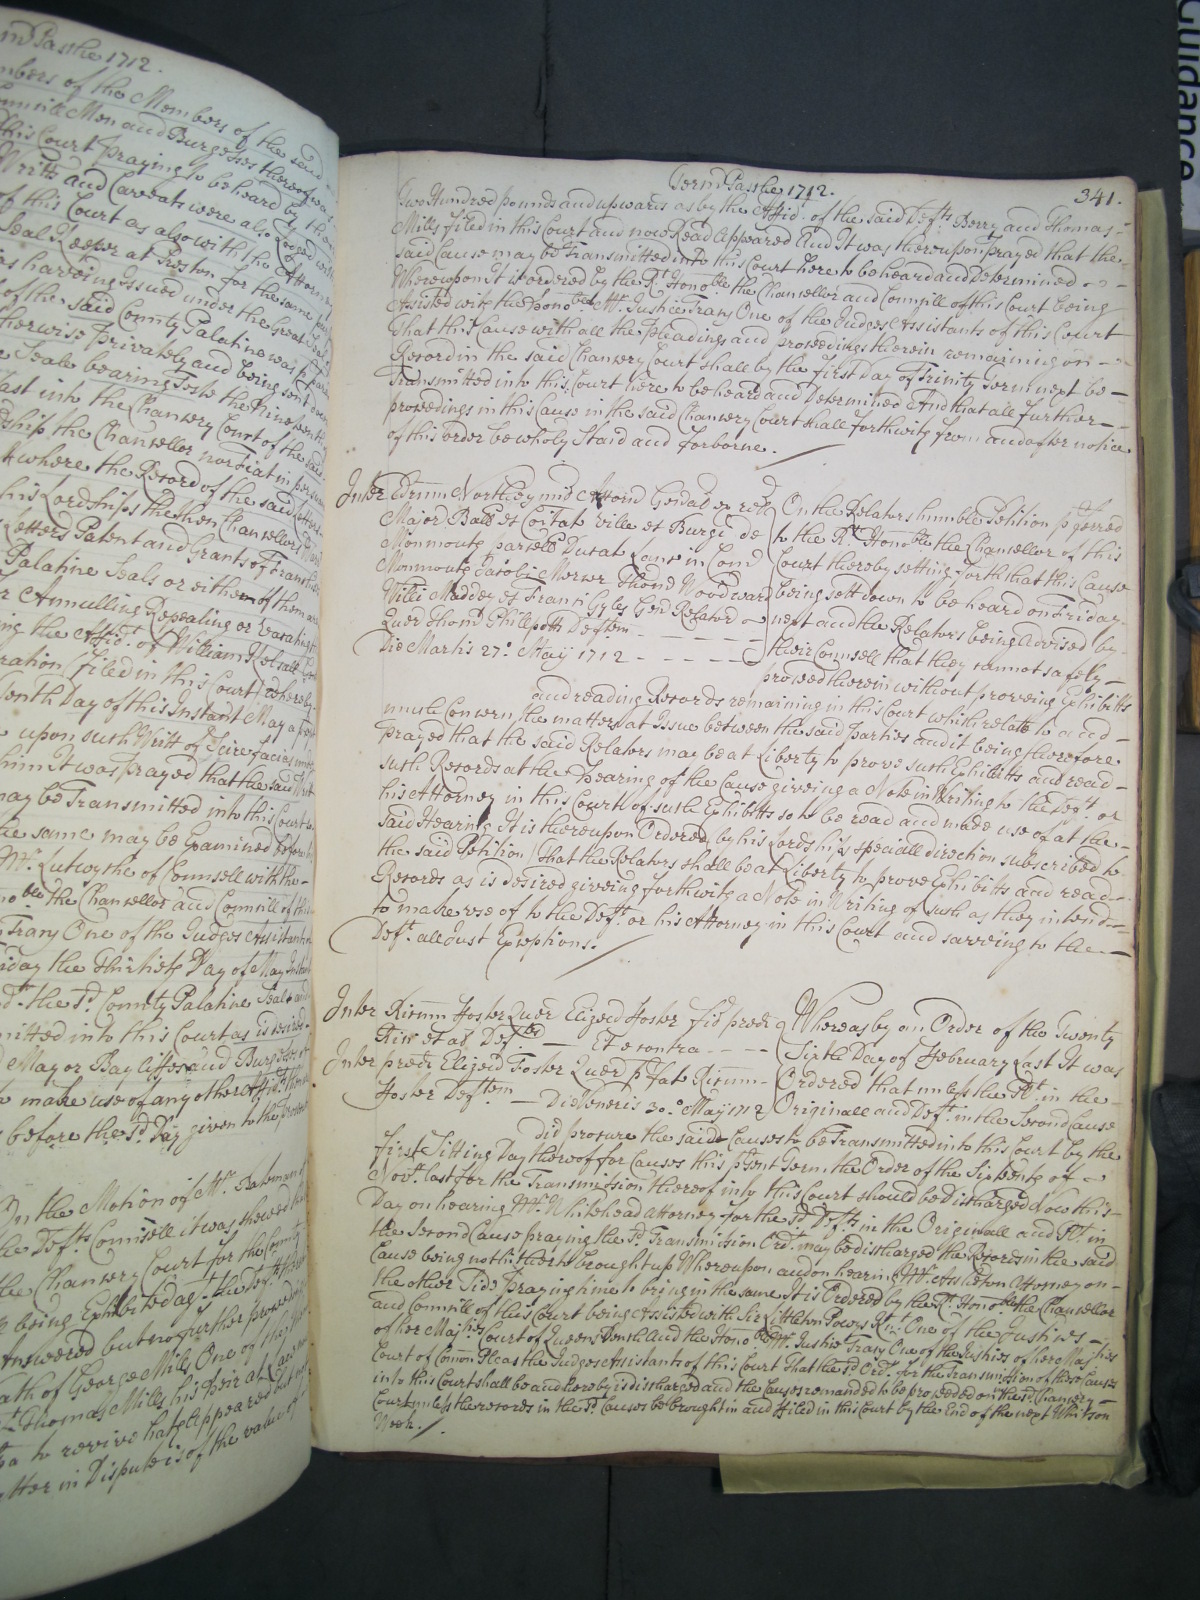 Term Pasche 1712.
mbers of the Members of the said
Councill Men and Burgesses thereof was
this Court praying to be heard by
Writts and Caveats were also Lodged with
of this Court as also with the Attorney
Seal Keeper at Preston for the same
as haveing issued under the Great
of the said County Palatine was
therwise Privately and being sent
Seale bearing Teste the Nineteenth
last into the Chancery Court of the said
dship the Chancellor nor fiat in
where the Record of the said Letters
his Lordships the then Chancellors
Letters Patent and Grants of Franchises
Palatine Seals or either of them
r Annulling Repealing or Vacating
ing the Affidt. of William Kelsall
ration filed in this Court whereby
Tenth Day of this Instant May
upon such Writt of Scire facias
him It was prayed that the said Writ
may be Transmitted into this Court
the same may be Examined before
Mr. Lutwythe of Counsell with the
the Chancellor and Councill of this
Tracy One of the Judges Assistants
iday the Thirtieth Day of May Instant
the sd. County Palatine Seal and
mitted into this Court as is desired
Mayor Bayliffes and Burgesses
make use of any other Affidts
before the sd. Day given to the
On the Motion of Mr. Bateman
the Defts. Counsell it was shewed
the Chancery Court for the County
being Exhibited agt. the Deft.
Answered but no further proceedings
ath of George Mills One of
Thomas Mills his Heir at Law
to revive hath Appeared but
tter in Dispute is of the value of
Term Pasche 1712. 341.
Two Hundred pounds and upwards as by the Affid. of the said Defts. Berry and Thomas
Mills filed in this Court and now Read Appeared And It was thereupon prayed that the
said Cause may be Transmitted into this Court here to be heard and Determined
Whereupon It is ordered by the Rt. Honoble the Chancellor and Councill of this Court being
Assisted with the Honoble Mr. Justice Tracy One of the Judges Assistants of this Court
That this Cause with all the pleadings and proceedings therein remaining on
Record in the said Chancery Court shall by the first Day of Trinity Term next be
Transmitted into this Court here to be heard and Determined And that all further
proceedings in this Cause in the said Chancery Court shall forthwith from and after notice
of this order be wholy Staid and forborne.
Inter Edrum Northey mil Attorn Generall ex rell
Major Ball et Coitat ville et Burgi de
Monmouth parcell Ducat Lanc in Com
Monmouth Jacobi Mercer Thom Woodward
Willi Maddey et Franci Gyles Gen Relator
Quer Thom Phillpotts Deftem
Die Martis 27o. Maij 1712
On the Relators humble Petition pferred
to the Rt. Honoble the Chancellor of this
Court thereby setting forth that this Cause
being sett down to be heard on Friday
next and the Relators being Advised by
their Counsell that they cannot safely
proceed therein without proveing Exhibitts
and reading Records remaining in this Court which relate to and
much Concern the matters at Issue between the said Parties and it being therefore
prayed that the said Relators may be at Liberty to prove such Exhibitts and read
such Records at the Hearing of the Cause giveing a Note in Writing to the Deft. or
his Attorney in this Court of such Exhibitts so to be read and made use of at the
said Hearing It is thereupon Ordered by his Lordships speciall direction subscribed to
the said Petition That the Relators shall be at Liberty to prove Exhibitts and read
Records as is desired giveing forthwith a Note in Writing of such as they intend
to make use of to the Deft. or his Attorney in this Court and saveing to the
Deft. all Just Exceptions.
Inter Ricum Foster Quer Elized Foster
Vid et al Defted — Et e contra
Inter Elized Foster Quer p fat Ricum
Foster Deftem — Die Veneris 30o. Maij 1712
Whereas by an Order of the Twenty
Sixth Day of February last It was
Ordered that unless the Plt. in the
Originall and Deft. in the Second Cause
did procure the said Causes to be Transmitted into this Court by the
first Sitting Day thereof for Causes this psent Term the Order of the Sixteenth of
Novr. last for the Transmission thereof into this Court should be discharged Now this
Day on hearing Mr. Whitehead Attorney for the sd. Defts. in the Originall and Plt. in
the Second Cause praying the sd. Transmission Ordr. may be discharged the Records in the said
Cause being not hitherto brought up Whereupon and on hearing Mr. Assheton Attorney on
the other Side praying time to bring in the same It is Ordered by the Rt. Honoble the Chancellor
and Councill of this Court being Assisted with Sir Littleton Powys Knt. One of the Justices
of her Majties Court of Queens Bench And the Honoble Mr. Justice Tracy One of the Justices of her Majties
Court of Comon Pleas the Judges Assistants of this Court That the sd. Ordr. for the Transmission of these Causes
into this Court shall be and hereby is discharged and the Causes remanded to be proceeded on in the sd. Chancery
Court unless the records in the sd. Causes be brought in and filed in this Court by the End of the next Whitson
Week.
Guidance